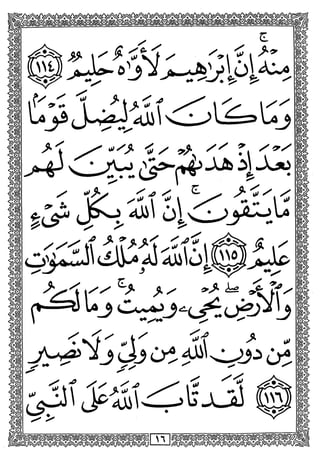 مِنْهُ ۚ إِنَّ إِبْرَٰهِيمَ لَأَوَّٰهٌ حَلِيمٌ ١١٤
وَمَا كَانَ ٱللَّهُ لِيُضِلَّ قَوْمًۢا
بَعْدَ إِذْ هَدَىٰهُمْ حَتَّىٰ يُبَيِّنَ لَهُم
مَّا يَتَّقُونَ ۚ إِنَّ ٱللَّهَ بِكُلِّ شَىْءٍ
عَلِيمٌ ١١٥ إِنَّ ٱللَّهَ لَهُۥ مُلْكُ ٱلسَّمَٰوَٰتِ
وَٱلْأَرْضِ ۖ يُحْىِۦ وَيُمِيتُ ۚ وَمَا لَكُم
مِّن دُونِ ٱللَّهِ مِن وَلِىٍّ وَلَا نَصِيرٍ
١١٦ لَّقَد تَّابَ ٱللَّهُ عَلَى ٱلنَّبِىِّ
١٦